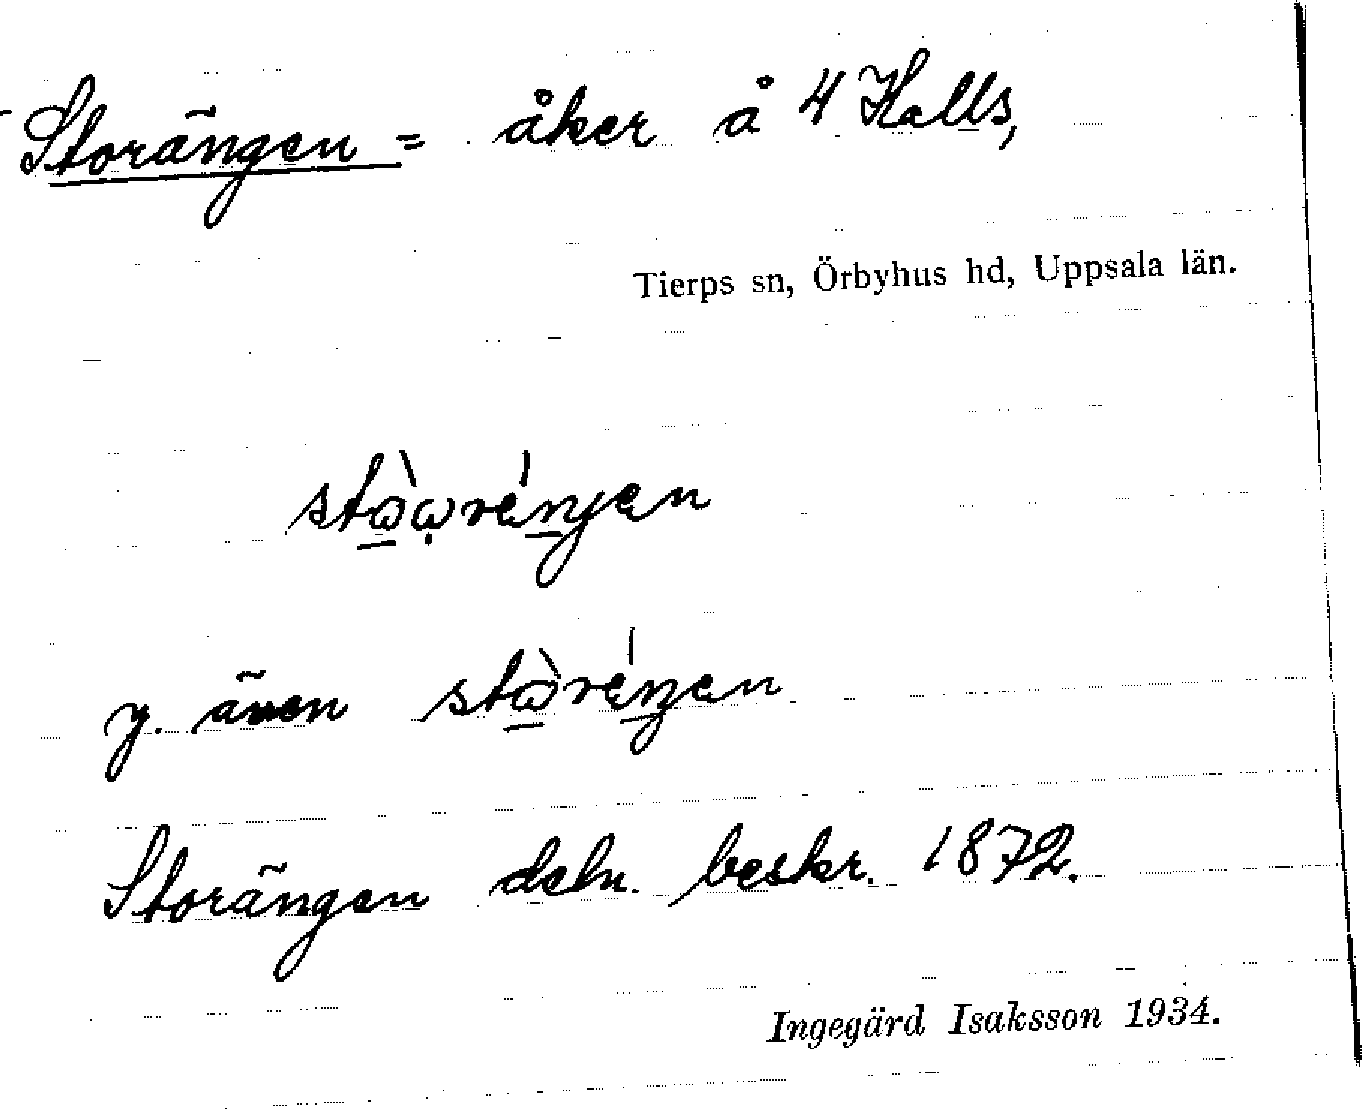 Storängen = åker å 4 Halls,
Tierps sn, Örbyhus hd, Uppsala län.
y. även
Storängen deln. beskr. 1872.
Ingegärd Isaksson 1934.